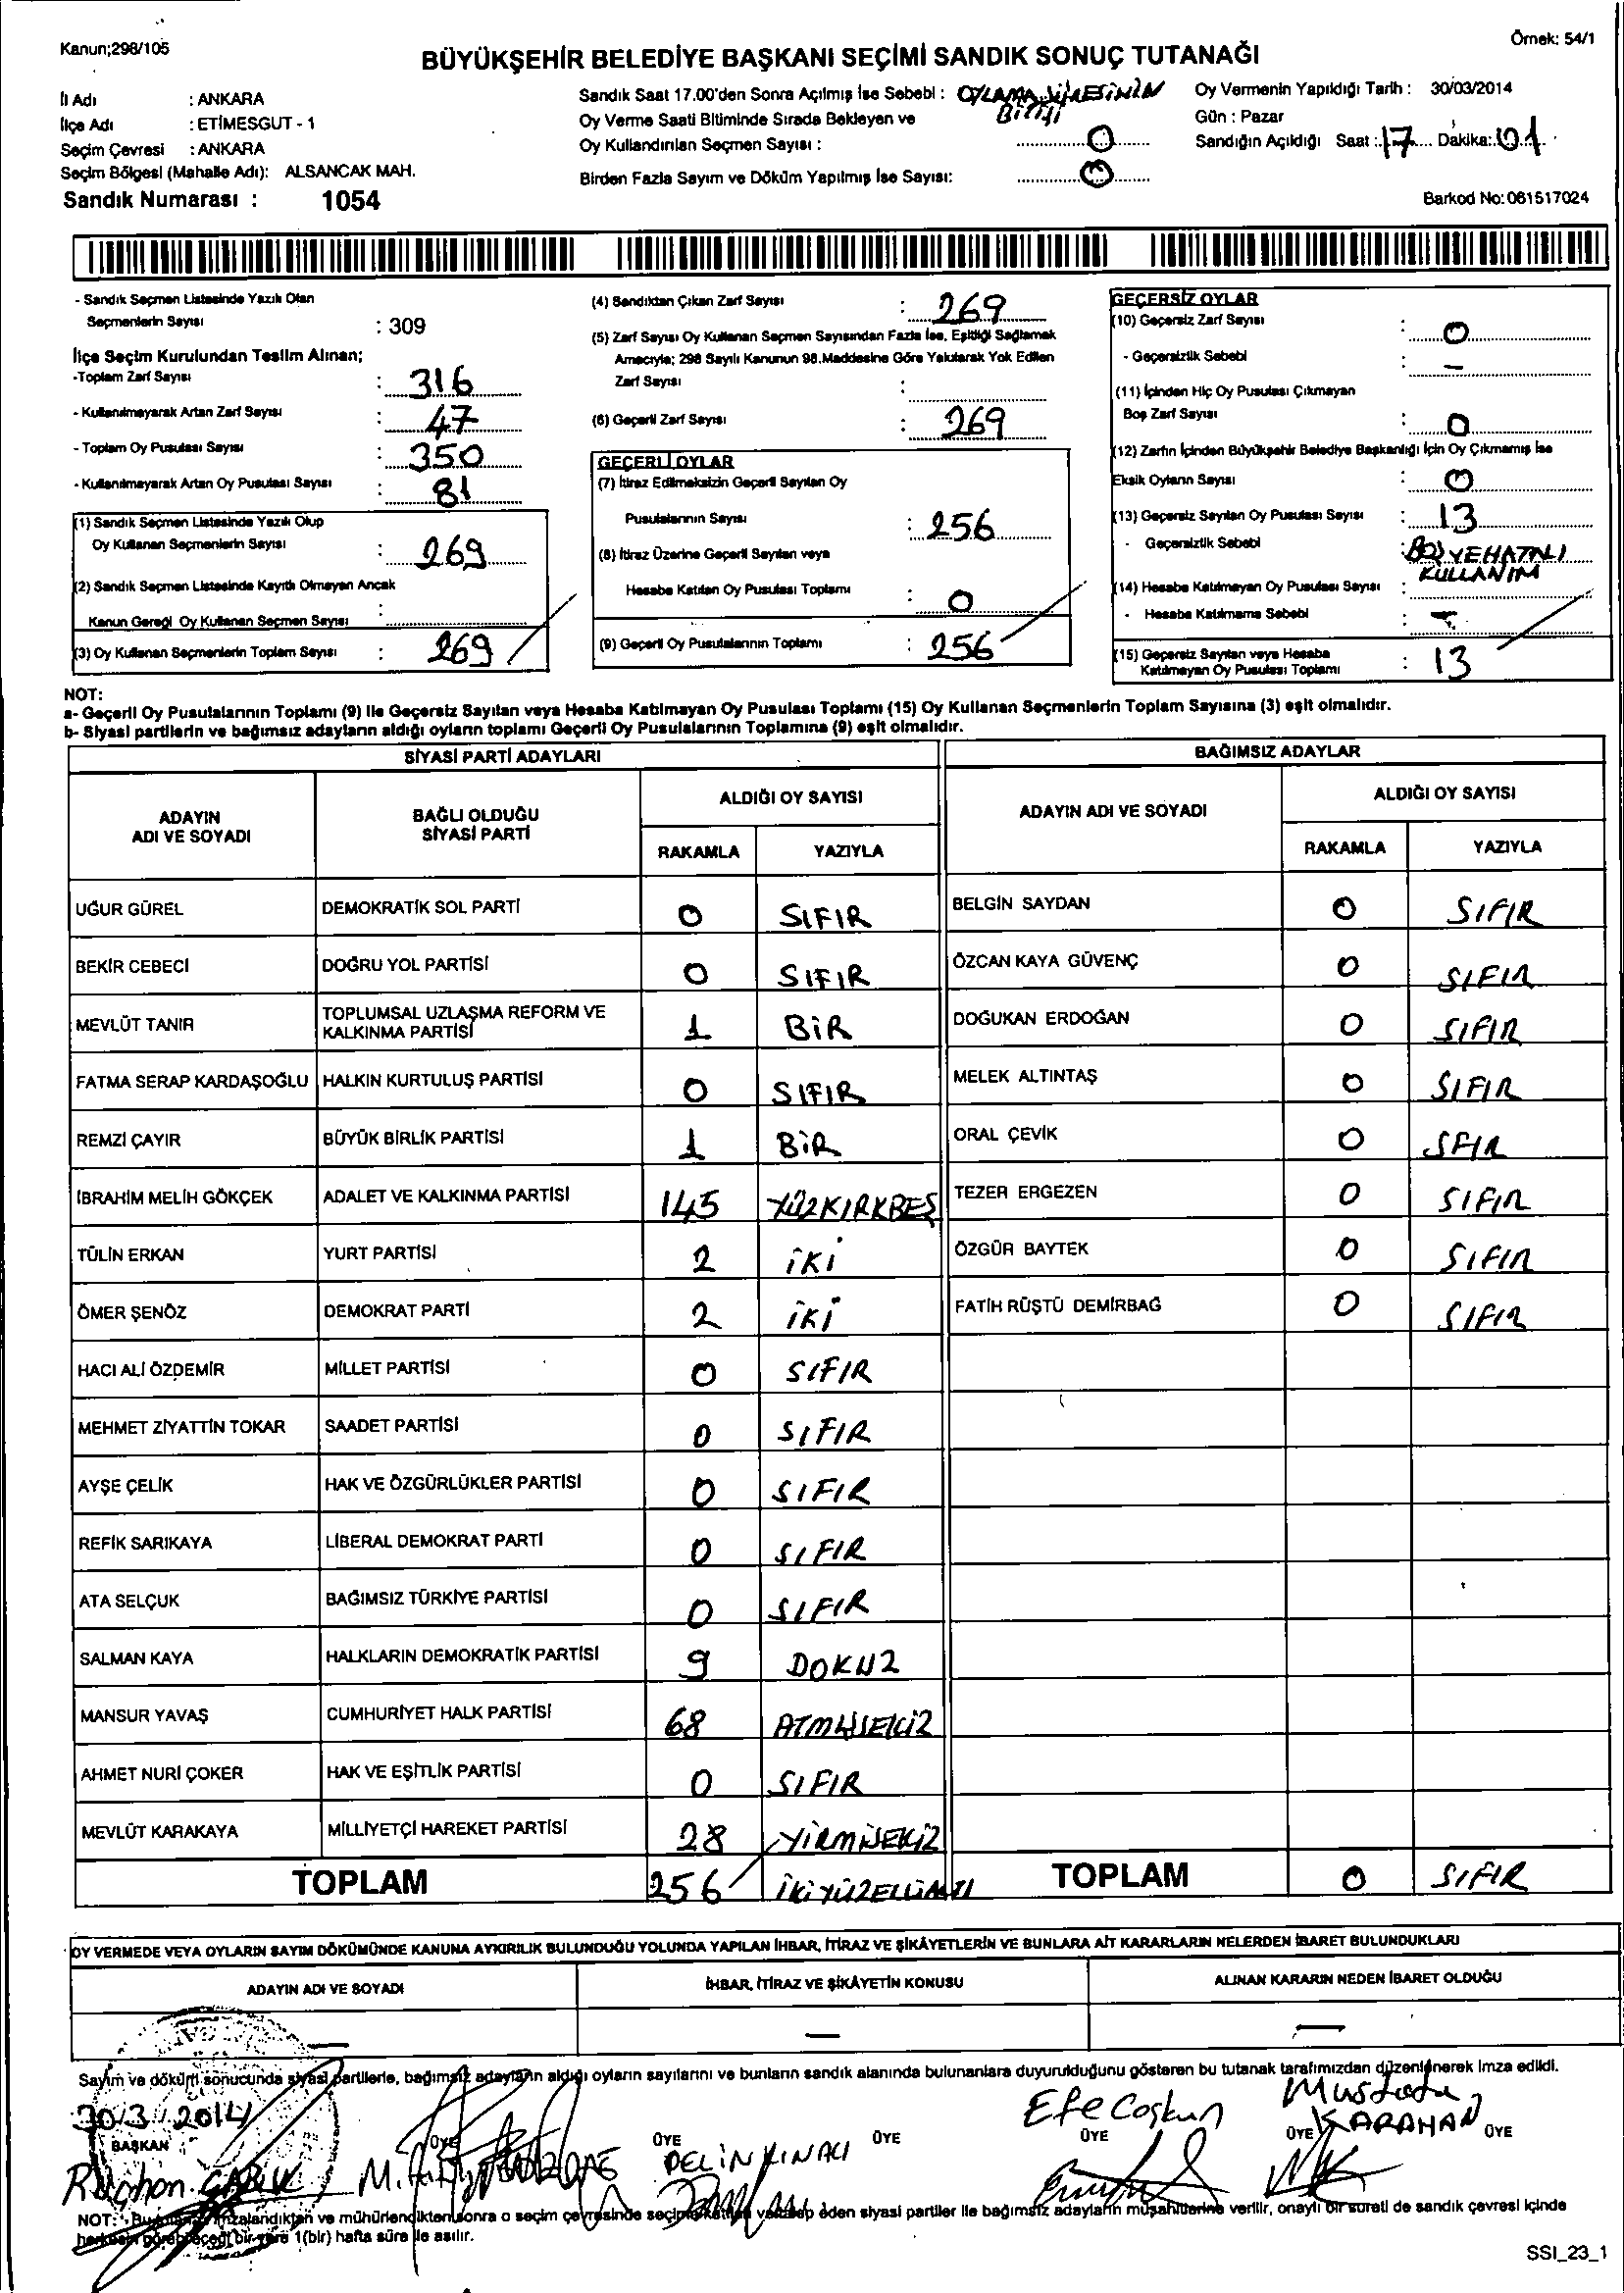 Kanun;298/105
Örnek: 54/1
BÜYÜKŞEHİR BELEDİYE BAŞKANI SEÇİMİ SANDIK SONUÇ TUTANAĞI
İl Adı : ANKARA
İlçe Adı : ETİMESGUT - 1
Seçim Çevresi : ANKARA
Seçim Bölgesi (Mahalle Adı): ALSANCAK MAH.
Sandık Numarası : 1054
Sandık Saat 17.00'den Sonra Açılmış İse Sebebi : OYLAMA SÜRESİNİN BİTİŞİ
Oy Verme Saati Bitiminde Sırada Bekleyen ve
Oy Kullandırılan Seçmen Sayısı : 0
Birden Fazla Sayım ve Döküm Yapılmış İse Sayısı: 0
Oy Vermenin Yapıldığı Tarih : 30/03/2014
Gün : Pazar
Sandığın Açıldığı Saat : 17 Dakika: 01
Barkod No: 061517024
- Sandık Seçmen Listesinde Yazılı Olan
Seçmenlerin Sayısı : 309
İlçe Seçim Kurulundan Teslim Alınan;
-Toplam Zarf Sayısı : 316
- Kullanılmayarak Artan Zarf Sayısı : 47
- Toplam Oy Pusulası Sayısı : 350
- Kullanılmayarak Artan Oy Pusulası Sayısı : 81
(1) Sandık Seçmen Listesinde Yazılı Olup
Oy Kullanan Seçmenlerin Sayısı : 269
(2) Sandık Seçmen Listesinde Kayıtlı Olmayan Ancak
Kanun Gereği Oy Kullanan Seçmen Sayısı :
(3) Oy Kullanan Seçmenlerin Toplam Sayısı : 269
(4) Sandıktan Çıkan Zarf Sayısı : 269
(5) Zarf Sayısı Oy Kullanan Seçmen Sayısından Fazla İse, Eşitliği Sağlamak
Amacıyla; 298 Sayılı Kanunun 98.Maddesine Göre Yakılarak Yok Edilen
Zarf Sayısı :
(6) Geçerli Zarf Sayısı : 269
GEÇERLİ OYLAR
(7) İtiraz Edilmeksizin Geçerli Sayılan Oy
Pusulalarının Sayısı : 256
(8) İtiraz Üzerine Geçerli Sayılan veya
Hesaba Katılan Oy Pusulası Toplamı : 0
(9) Geçerli Oy Pusulalarının Toplamı : 256
GEÇERSİZ OYLAR
(10) Geçersiz Zarf Sayısı : 0
- Geçersizlik Sebebi : -
(11) İçinden Hiç Oy Pusulası Çıkmayan
Boş Zarf Sayısı : 0
(12) Zarfın İçinden Büyükşehir Belediye Başkanlığı İçin Oy Çıkmamış İse
Eksik Oyların Sayısı : 0
(13) Geçersiz Sayılan Oy Pusulası Sayısı : 13
- Geçersizlik Sebebi : BOŞ VE HATALI
KULLANIM
(14) Hesaba Katılmayan Oy Pusulası Sayısı :
- Hesaba Katılmama Sebebi :
(15) Geçersiz Sayılan veya Hesaba
Katılmayan Oy Pusulası Toplamı : 13
NOT:
a- Geçerli Oy Pusulalarının Toplamı (9) ile Geçersiz Sayılan veya Hesaba Katılmayan Oy Pusulası Toplamı (15) Oy Kullanan Seçmenlerin Toplam Sayısına (3) eşit olmalıdır.
b- Siyasi partilerin ve bağımsız adayların aldığı oyların toplamı Geçerli Oy Pusulalarının Toplamına (9) eşit olmalıdır.
SİYASİ PARTİ ADAYLARI
BAĞIMSIZ ADAYLAR
ADAYIN ADI VE SOYADI
BAĞLI OLDUĞU SİYASİ PARTİ
ALDIĞI OY SAYISI
RAKAMLA YAZIYLA
ADAYIN ADI VE SOYADI
ALDIĞI OY SAYISI
RAKAMLA YAZIYLA
UĞUR GÜREL DEMOKRATİK SOL PARTİ 0 SIFIR BELGİN SAYDAN 0 SIFIR
BEKİR CEBECİ DOĞRU YOL PARTİSİ 0 SIFIR ÖZCAN KAYA GÜVENÇ 0 SIFIR
MEVLÜT TANIR TOPLUMSAL UZLAŞMA REFORM VE KALKINMA PARTİSİ 1 BİR DOĞUKAN ERDOĞAN 0 SIFIR
FATMA SERAP KARDAŞOĞLU HALKIN KURTULUŞ PARTİSİ 0 SIFIR MELEK ALTINTAŞ 0 SIFIR
REMZİ ÇAYIR BÜYÜK BİRLİK PARTİSİ 1 BİR ORAL ÇEVİK 0 SFIR
İBRAHİM MELİH GÖKÇEK ADALET VE KALKINMA PARTİSİ 145 YÜZKIRKBEŞ TEZER ERGEZEN 0 SIFIR
TÜLİN ERKAN YURT PARTİSİ 2 İKİ ÖZGÜR BAYTEK 0 SIFIR
ÖMER ŞENÖZ DEMOKRAT PARTİ 2 İKİ FATİH RÜŞTÜ DEMİRBAĞ 0 SIFIR
HACI ALİ ÖZDEMİR MİLLET PARTİSİ 0 SIFIR
MEHMET ZİYATTİN TOKAR SAADET PARTİSİ 0 SIFIR
AYŞE ÇELİK HAK VE ÖZGÜRLÜKLER PARTİSİ 0 SIFIR
REFİK SARIKAYA LİBERAL DEMOKRAT PARTİ 0 SIFIR
ATA SELÇUK BAĞIMSIZ TÜRKİYE PARTİSİ 0 SIFIR
SALMAN KAYA HALKLARIN DEMOKRATİK PARTİSİ 9 DOKUZ
MANSUR YAVAŞ CUMHURİYET HALK PARTİSİ 68 ATMIŞSEKİZ
AHMET NURİ ÇOKER HAK VE EŞİTLİK PARTİSİ 0 SIFIR
MEVLÜT KARAKAYA MİLLİYETÇİ HAREKET PARTİSİ 28 YİRMİSEKİZ
TOPLAM 256 İKİYÜZELLİALTI TOPLAM 0 SIFIR
OY VERMEDE VEYA OYLARIN SAYIM DÖKÜMÜNDE KANUNA AYKIRILIK BULUNDUĞU YOLUNDA YAPILAN İHBAR, İTİRAZ VE ŞİKÂYETLERİN VE BUNLARA AİT KARARLARIN NELERDEN İBARET BULUNDUKLARI
ADAYIN ADI VE SOYADI İHBAR, İTİRAZ VE ŞİKÂYETİN KONUSU ALINAN KARARIN NEDEN İBARET OLDUĞU
— — —
Sayım ve döküm sonucunda siyasi partilerle, bağımsız adayların aldığı oyların sayılarını ve bunların sandık alanında bulunanlara duyurulduğunu gösteren bu tutanak tarafımızdan düzenlenerek imza edildi.
30/3/2014 Efe Coşkun Mustafa KARAHAN
BAŞKAN ÜYE ÜYE ÜYE ÜYE ÜYE ÜYE
PELİN KINALI
NOT: Bu tutanak imzalandıktan ve mühürlendikten sonra o seçim çevresinde seçime katılan ve talep eden siyasi partiler ile bağımsız adayların müşahitlerine verilir, onaylı bir sureti de sandık çevresi içinde
herkesin görebileceği bir yere 1(bir) hafta süre ile asılır.
SSI_23_1